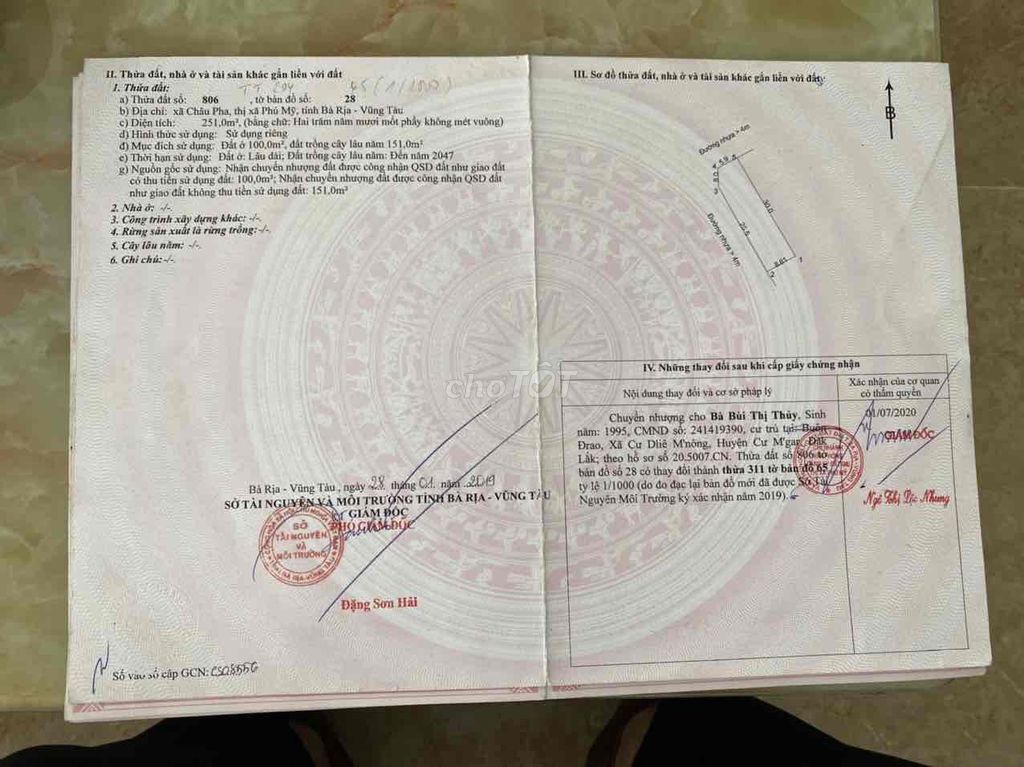 II. Thửa đất, nhà ở và tài sản khác gắn liền với đất
1. Thửa đất:
a) Thửa đất số: 806 , tờ bản đồ số: 28
b) Địa chỉ: xã Châu Pha, thị xã Phú Mỹ, tỉnh Bà Rịa - Vũng Tàu
c) Diện tích: 251,0m², (bằng chữ: Hai trăm năm mươi mốt phẩy không mét vuông)
d) Hình thức sử dụng: Sử dụng riêng
đ) Mục đích sử dụng: Đất ở 100,0m², đất trồng cây lâu năm 151,0m²
e) Thời hạn sử dụng: Đất ở: Lâu dài; Đất trồng cây lâu năm: Đến năm 2047
g) Nguồn gốc sử dụng: Nhận chuyển nhượng đất được công nhận QSD đất như giao đất
có thu tiền sử dụng đất: 100,0m²; Nhận chuyển nhượng đất được công nhận QSD đất
như giao đất không thu tiền sử dụng đất: 151,0m²
2. Nhà ở: -/-
3. Công trình xây dựng khác: -/-
4. Rừng sản xuất là rừng trồng:-/-
5. Cây lâu năm: -/-
6. Ghi chú:-/-
Bà Rịa - Vũng Tàu , ngày 28 tháng 01 năm 2019
SỞ TÀI NGUYÊN VÀ MÔI TRƯỜNG TỈNH BÀ RỊA - VŨNG TÀU
GIÁM ĐỐC
PHÓ GIÁM ĐỐC
SỞ
TÀI NGUYÊN
VÀ
MÔI TRƯỜNG
Đặng Sơn Hải
Số vào sổ cấp GCN:
III. Sơ đồ thửa đất, nhà ở và tài sản khác gắn liền với đất:
B
Đường nhựa > 4m
5.9
4
3
30.0
Đường nhựa > 4m
1
2
IV. Những thay đổi sau khi cấp giấy chứng nhận
Nội dung thay đổi và cơ sở pháp lý
Xác nhận của cơ quan
có thẩm quyền
Chuyển nhượng cho Bà Bùi Thị Thủy, Sinh
năm: 1995, CMND số: 241419390, cư trú tại: Buôn
Đrao, Xã Cư Dliê M'nông, Huyện Cư M'gar, Đắk
Lắk; theo hồ sơ số 20.5007.CN. Thửa đất số 806 tờ
bản đồ số 28 có thay đổi thành thửa 311 tờ bản đồ 65
tỷ lệ 1/1000 (do đo đạc lại bản đồ mới đã được Sở Tài
Nguyên Môi Trường ký xác nhận năm 2019).
01/07/2020
GIÁM ĐỐC
Ngô Thị Lộc Nhung
choTỐT